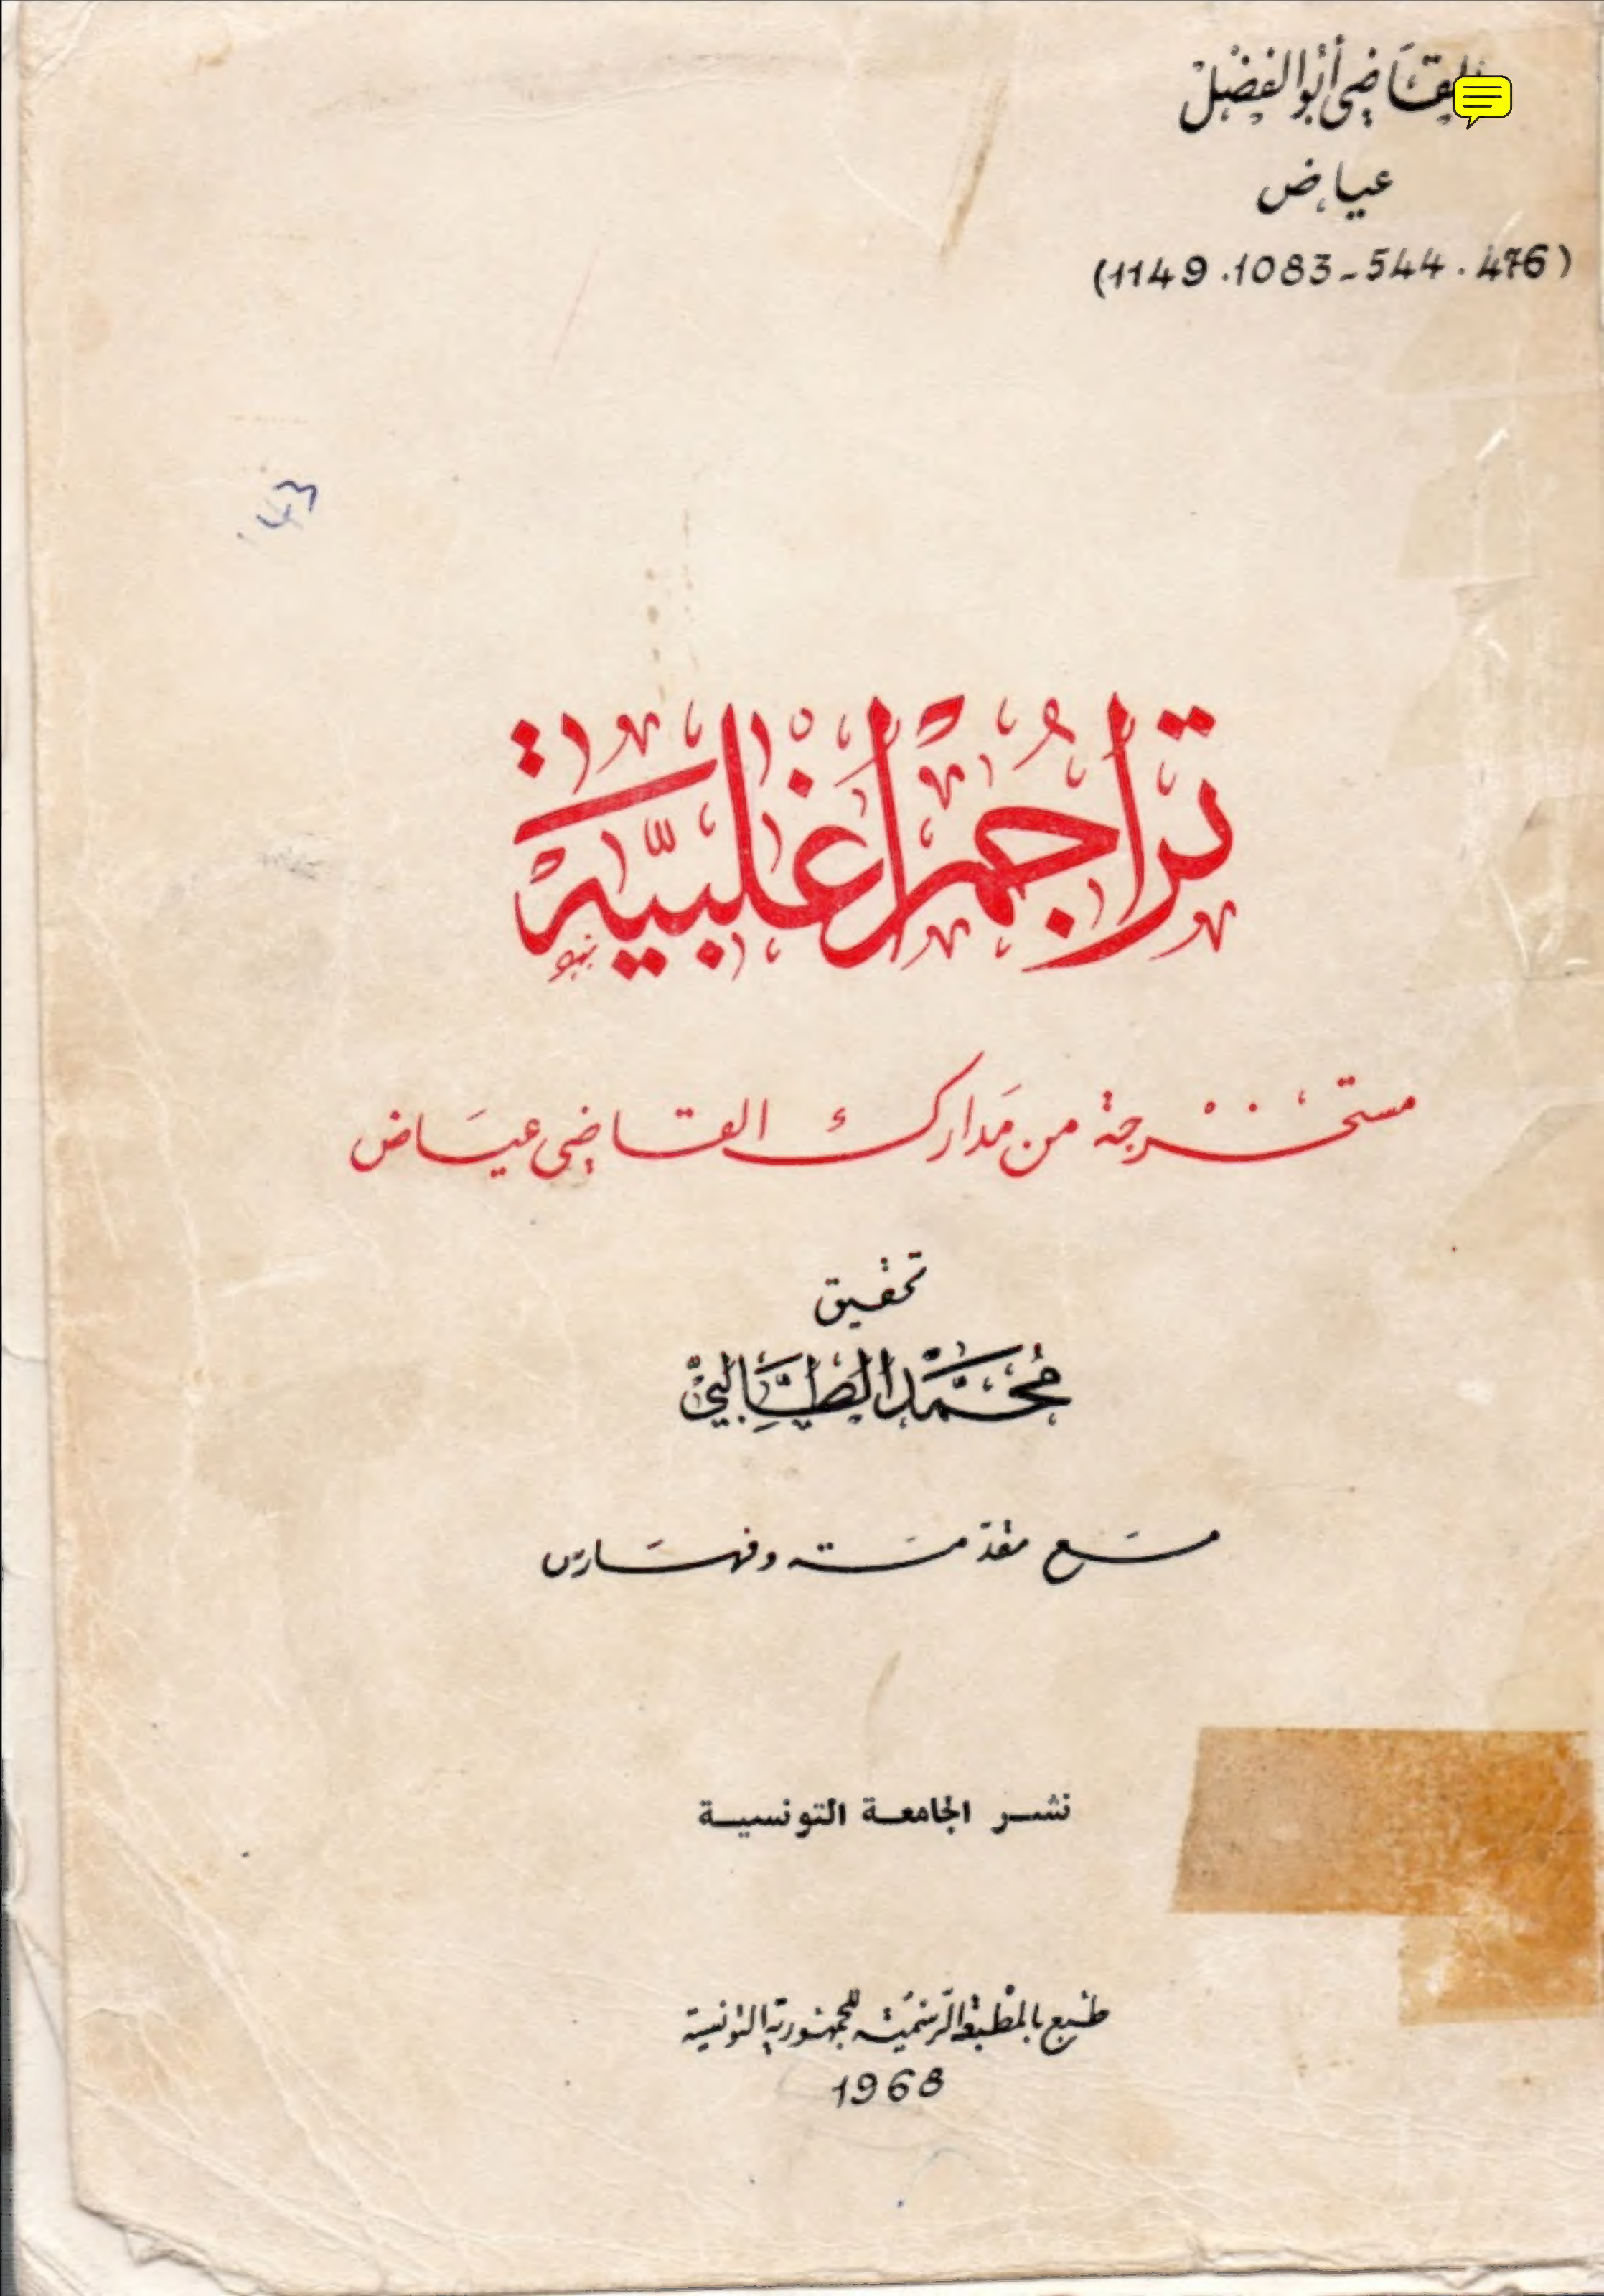 القاضي أبو الفضل
عياض
(1149 . 1083 - 544 . 476)
43
تراجم أغلبية
مستخرجة من مدارك القاضي عياض
تحقيق
محمد الطالبي
مع مقدمة وفهارس
نشر الجامعة التونسية
طبع بالمطبعة الرسمية للجمهورية التونسية
1968